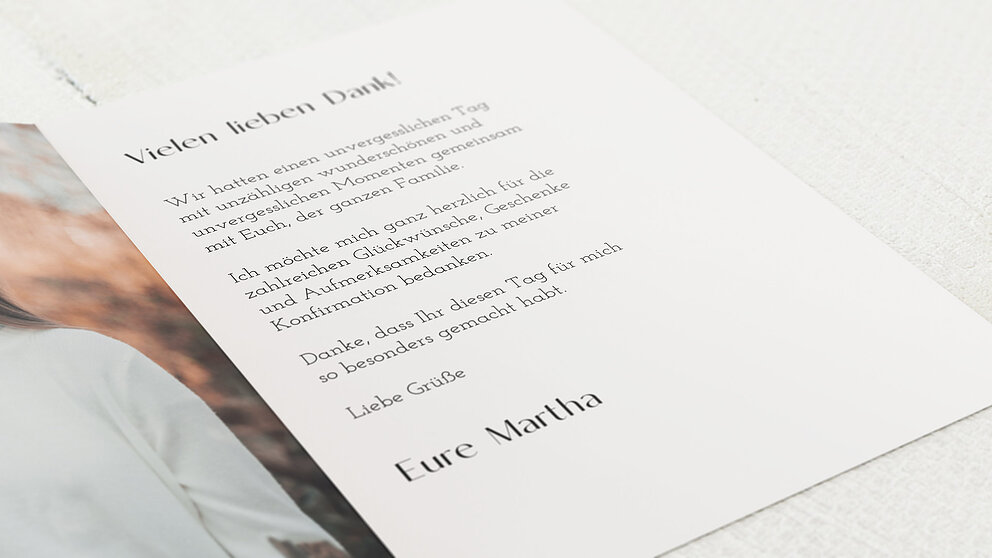 Vielen lieben Dank!
Wir hatten einen unvergesslichen Tag
mit unzähligen wunderschönen und
unvergesslichen Momenten gemeinsam
mit Euch, der ganzen Familie.
Ich möchte mich ganz herzlich für die
zahlreichen Glückwünsche, Geschenke
und Aufmerksamkeiten zu meiner
Konfirmation bedanken.
Danke, dass Ihr diesen Tag für mich
so besonders gemacht habt.
Liebe Grüße
Eure Martha